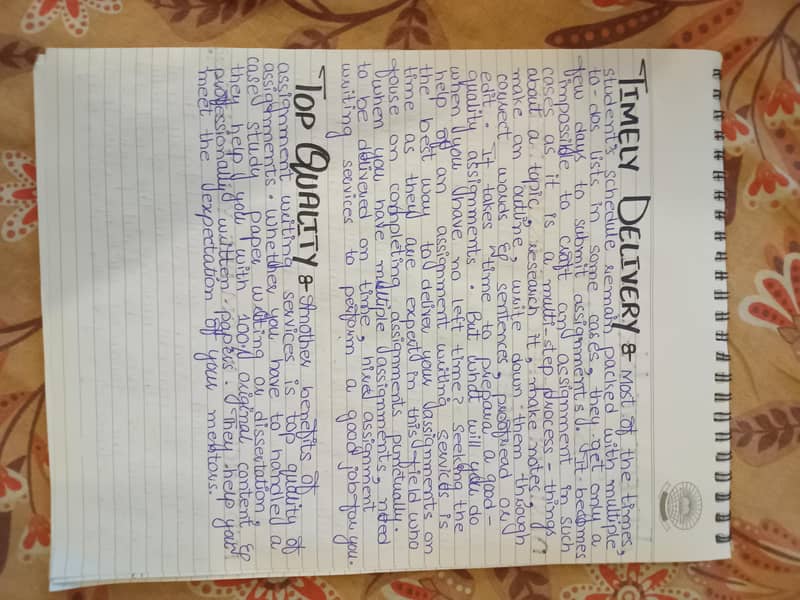 TIMELY DELIVERY :- Most of the times,
student's schedule remain packed with multiple
to-dos lists in some cases, they get only a
few days to submit assignments. It becomes
impossible to craft an assignment in such
cases as it is a multi-step process - things
about a topic, research it, make notes,
make an outline, write down them through
correct words & sentences, proofread or
edit. It takes time to prepara a good-
quality assignments. But what will you do
when you have no left time? seeking the
help of an assignment writing services is
the best way to deliver your assignments on
time as they are expert in this field who
on completing assignments
when you have multiple assignments, need
to be delivered on time, hired assignment
writing services to perform a good job for you.
TOP QUALITY :- Another benefits of
assignment writing services is top quality of
assignments. whether you have to handled a
case study paper writing or dissertation,
they help you with 100% original content &
professionally written papers. They help you
meet the expectation of your mentors.